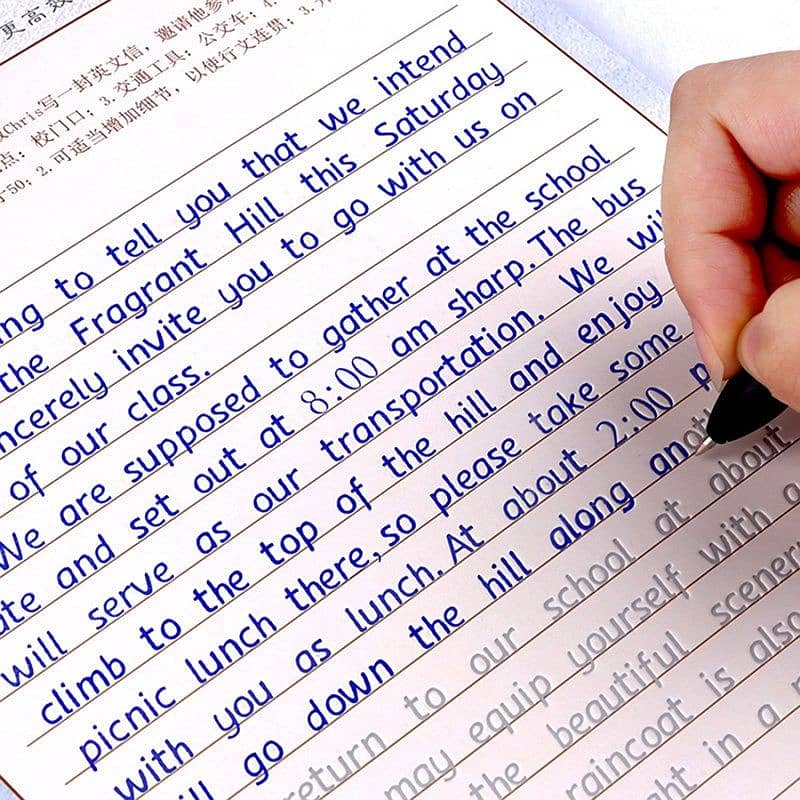 更高效
Chris写一封英文信，邀请他参
点：校门口；3.交通工具：公交车；4.
50；2.可适当增加细节，以使行文连贯；3.
to tell you that we intend
the Fragrant Hill this Saturday
invite you to go with us on
of our class.
We are supposed to gather at the school
and set out at 8:00 am sharp. The bus
will serve as our transportation. We
climb to the top of the hill and enjoy
picnic lunch there, so please take some
with you as lunch. At about 2:00
go down the hill along
return to our school at about
may equip yourself with a
the beautiful
raincoat is also
in a